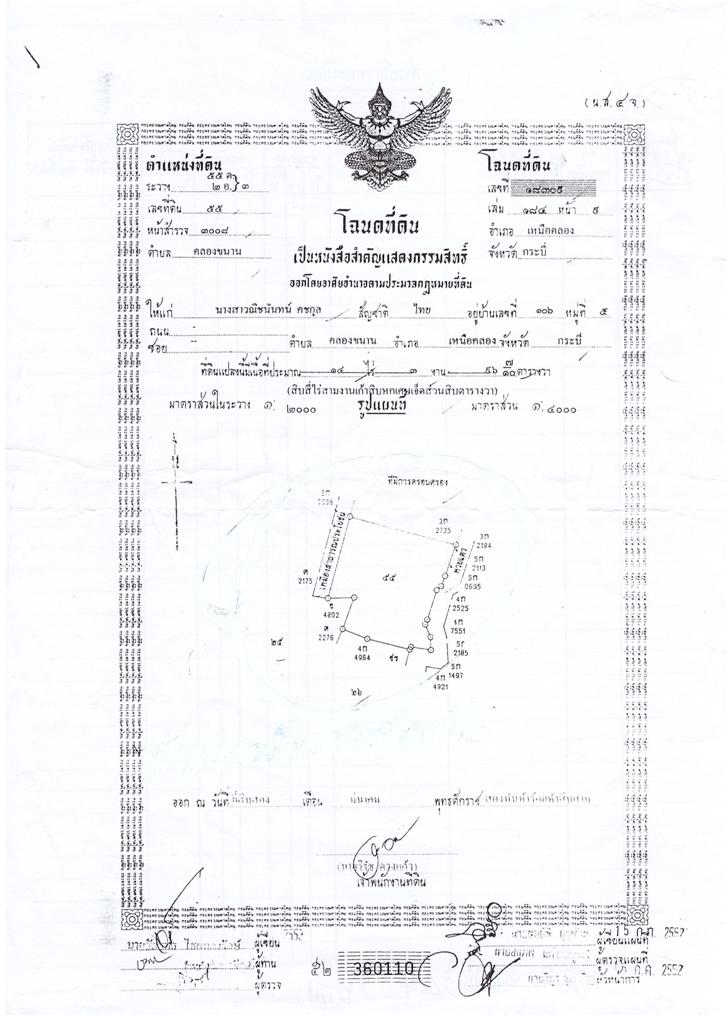 (น.ส.๔ จ.)
ตำแหน่งที่ดิน
ระวาง ๕๕ ต ๒ อ. ๓
เลขที่ดิน ๕๕
หน้าสำรวจ ๓๐๐๘
ตำบล คลองขนาน
โฉนดที่ดิน
เลขที่ ๑๘๓๐๕
เล่ม ๑๘๔ หน้า ๕
อำเภอ เหนือคลอง
จังหวัด กระบี่
โฉนดที่ดิน
เป็นหนังสือสำคัญแสดงกรรมสิทธิ์
ออกโดยอาศัยอำนาจตามประมวลกฎหมายที่ดิน
ให้แก่ นางสาวณิชนันทน์ คชกูล สัญชาติ ไทย อยู่บ้านเลขที่ ๑๐๖ หมู่ที่ ๕
ถนน
ซอย ตำบล คลองขนาน อำเภอ เหนือคลอง จังหวัด กระบี่
ที่ดินแปลงนี้มีเนื้อที่ประมาณ ๑๔ ไร่ ๓ งาน ๙๖ ๗/๑๐ ตารางวา
(สิบสี่ไร่สามงานเก้าสิบหกเศษเจ็ดส่วนสิบตารางวา)
มาตราส่วนในระวาง ๑: ๒๐๐๐ รูปแผนที่ มาตราส่วน ๑: ๔๐๐๐
ที่มีการครอบครอง
เหมืองสาธารณประโยชน์
3ก
2735
3ก
2194
ห้วยแห้ง
5ก
2113
5ก
0695
๕๕
ต
2175
ช
4802
ต
2276
4ก
2525
4ก
7551
5ก
2185
4ก
4984
ชร
5ก
1497
4ก
4921
๒๕
๒๖
ออก ณ วันที่ เดือน มีนาคม พุทธศักราช
เจ้าพนักงานที่ดิน
ผู้เขียน
ผู้ทาน
ผู้ตรวจ
๕๒ 360110
15 ก.ค. 2552
ผู้เขียนแผนที่
ผู้ตรวจแผนที่
ก.ค. 2552
หัวหน้าการ